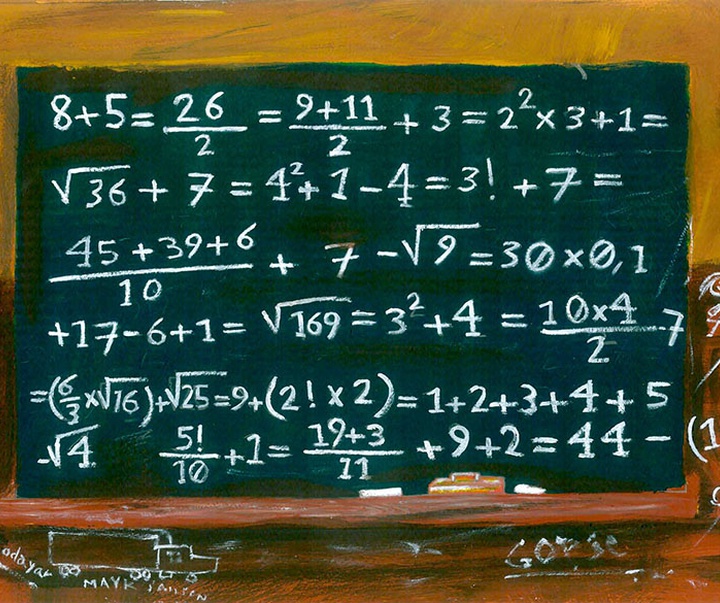 8+5= 26/2 = (9+11)/2 + 3 = 2²x3+1=
√36 + 7 = 4²+ 1 - 4 = 3! + 7 =
(45 + 39 + 6)/10 + 7 - √9 = 30 x 0,1
+17-6+1= √169 = 3²+4 = (10x4)/2 - 7
=(6/3 x√16)+√25=9+(2! x 2)= 1+2+3+4+5
-√4 5!/10 +1= (19+3)/11 +9+2=44-(1
odayar MAYK